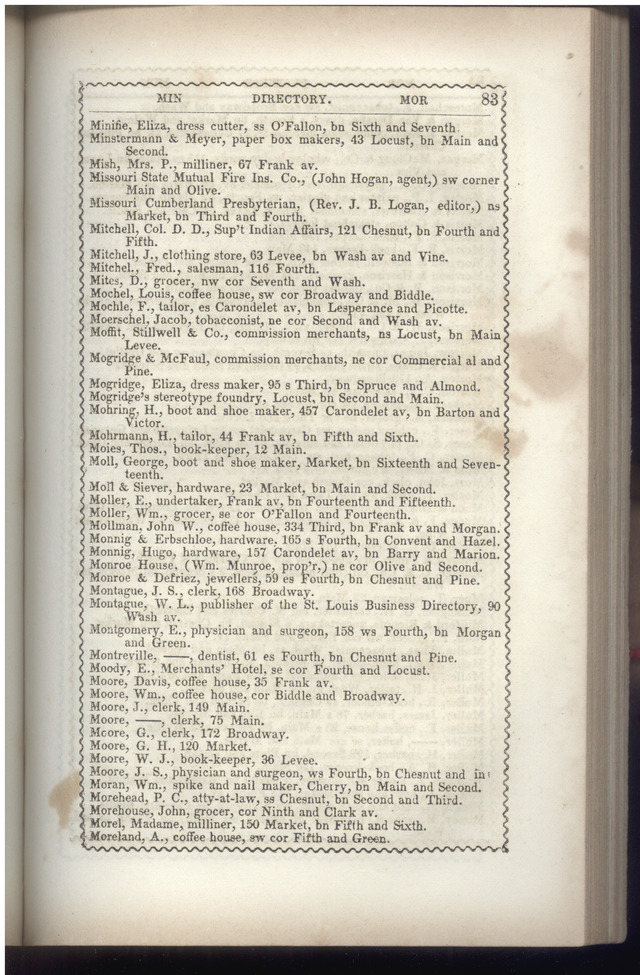 MIN DIRECTORY. MOR 83
Minifie, Eliza, dress cutter, ss O'Fallon, bn Sixth and Seventh.
Minstermann & Meyer, paper box makers, 43 Locust, bn Main and
Second.
Mish, Mrs. P., milliner, 67 Frank av.
Missouri State Mutual Fire Ins. Co., (John Hogan, agent,) sw corner
Main and Olive.
Missouri Cumberland Presbyterian, (Rev. J. B. Logan, editor,) ns
Market, bn Third and Fourth.
Mitchell, Col. D. D., Sup't Indian Affairs, 121 Chesnut, bn Fourth and
Fifth.
Mitchell, J., clothing store, 63 Levee, bn Wash av and Vine.
Mitchel., Fred., salesman, 116 Fourth.
Mites, D., grocer, nw cor Seventh and Wash.
Mochel, Louis, coffee house, sw cor Broadway and Biddle.
Mochle, F., tailor, es Carondelet av, bn Lesperance and Picotte.
Moerschel, Jacob, tobacconist, ne cor Second and Wash av.
Moffit, Stillwell & Co., commission merchants, ns Locust, bn Main
Levee.
Mogridge & McFaul, commission merchants, ne cor Commercial al and
Pine.
Mogridge, Eliza, dress maker, 95 s Third, bn Spruce and Almond.
Mogridge's stereotype foundry, Locust, bn Second and Main.
Mohring, H., boot and shoe maker, 457 Carondelet av, bn Barton and
Victor.
Mohrmann, H., tailor, 44 Frank av, bn Fifth and Sixth.
Moies, Thos., book-keeper, 12 Main.
Moll, George, boot and shoe maker, Market, bn Sixteenth and Seven-
teenth.
Moll & Siever, hardware, 23 Market, bn Main and Second.
Moller, E., undertaker, Frank av, bn Fourteenth and Fifteenth.
Moller, Wm., grocer, se cor O'Fallon and Fourteenth.
Mollman, John W., coffee house, 334 Third, bn Frank av and Morgan.
Monnig & Erbschloe, hardware, 165 s Fourth, bn Convent and Hazel.
Monnig, Hugo, hardware, 157 Carondelet av, bn Barry and Marion.
Monroe House, (Wm. Munroe, prop'r,) ne cor Olive and Second.
Monroe & Defriez, jewellers, 59 es Fourth, bn Chesnut and Pine.
Montague, J. S., clerk, 168 Broadway.
Montague, W. L., publisher of the St. Louis Business Directory, 90
Wash av.
Montgomery, E., physician and surgeon, 158 ws Fourth, bn Morgan
and Green.
Montreville, ——, dentist, 61 es Fourth, bn Chesnut and Pine.
Moody, E., Merchants' Hotel, se cor Fourth and Locust.
Moore, Davis, coffee house, 35 Frank av.
Moore, Wm., coffee house, cor Biddle and Broadway.
Moore, J., clerk, 149 Main.
Moore, ——, clerk, 75 Main.
Moore, G., clerk, 172 Broadway.
Moore, G. H., 120 Market.
Moore, W. J., book-keeper, 36 Levee.
Moore, J. S., physician and surgeon, ws Fourth, bn Chesnut and
Moran, Wm., spike and nail maker, Cherry, bn Main and Second.
Morehead, P. C., atty-at-law, ss Chesnut, bn Second and Third.
Morehouse, John, grocer, cor Ninth and Clark av.
Morel, Madame, milliner, 150 Market, bn Fifth and Sixth.
Moreland, A., coffee house, sw cor Fifth and Green.